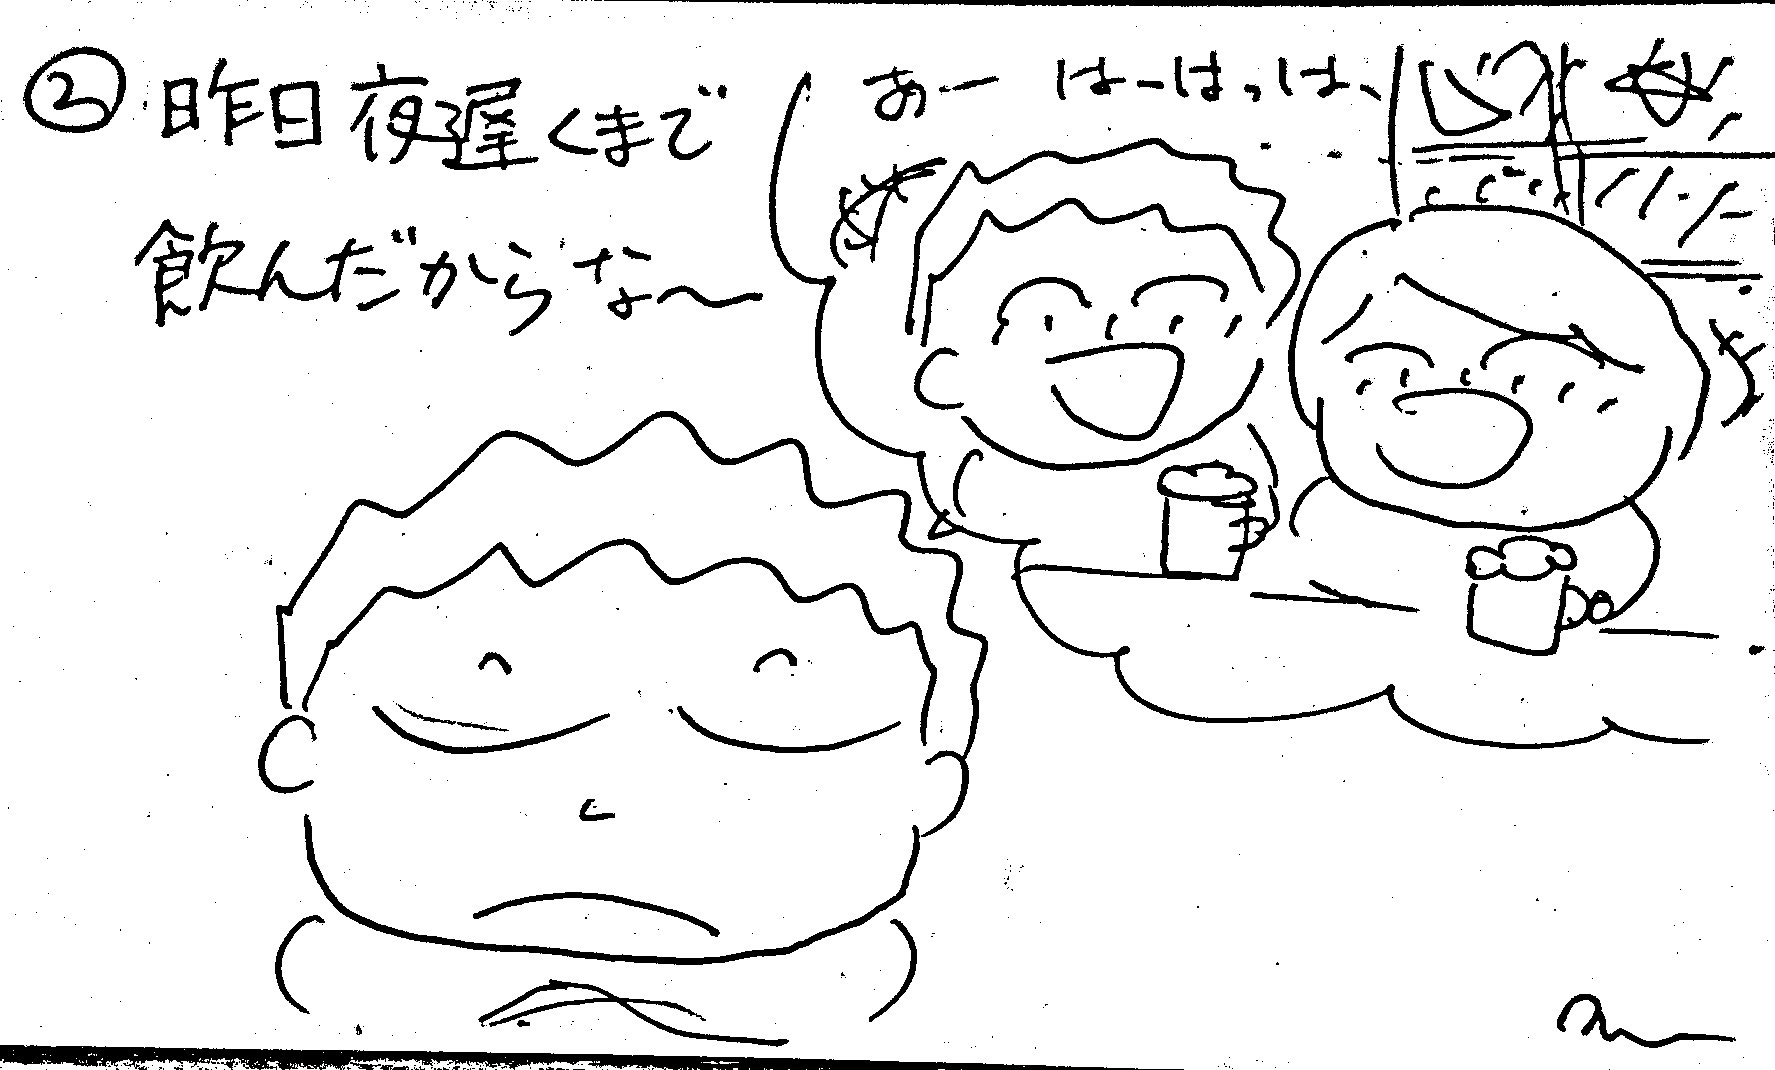 ②昨日夜遅くまで
飲んだからな〜
あーはーはっは、